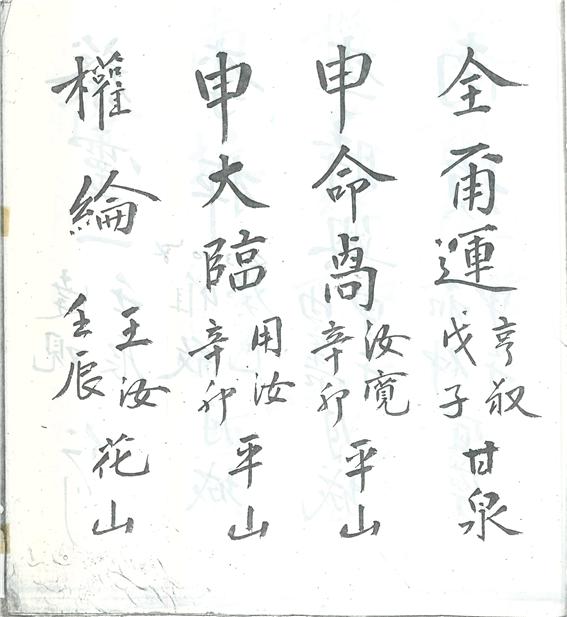 全運 亨叔 戊子 甘泉
申命卨 汝寬 辛卯 平山
申大臨 用汝 辛卯 平山
權綸 王汝 壬辰 花山